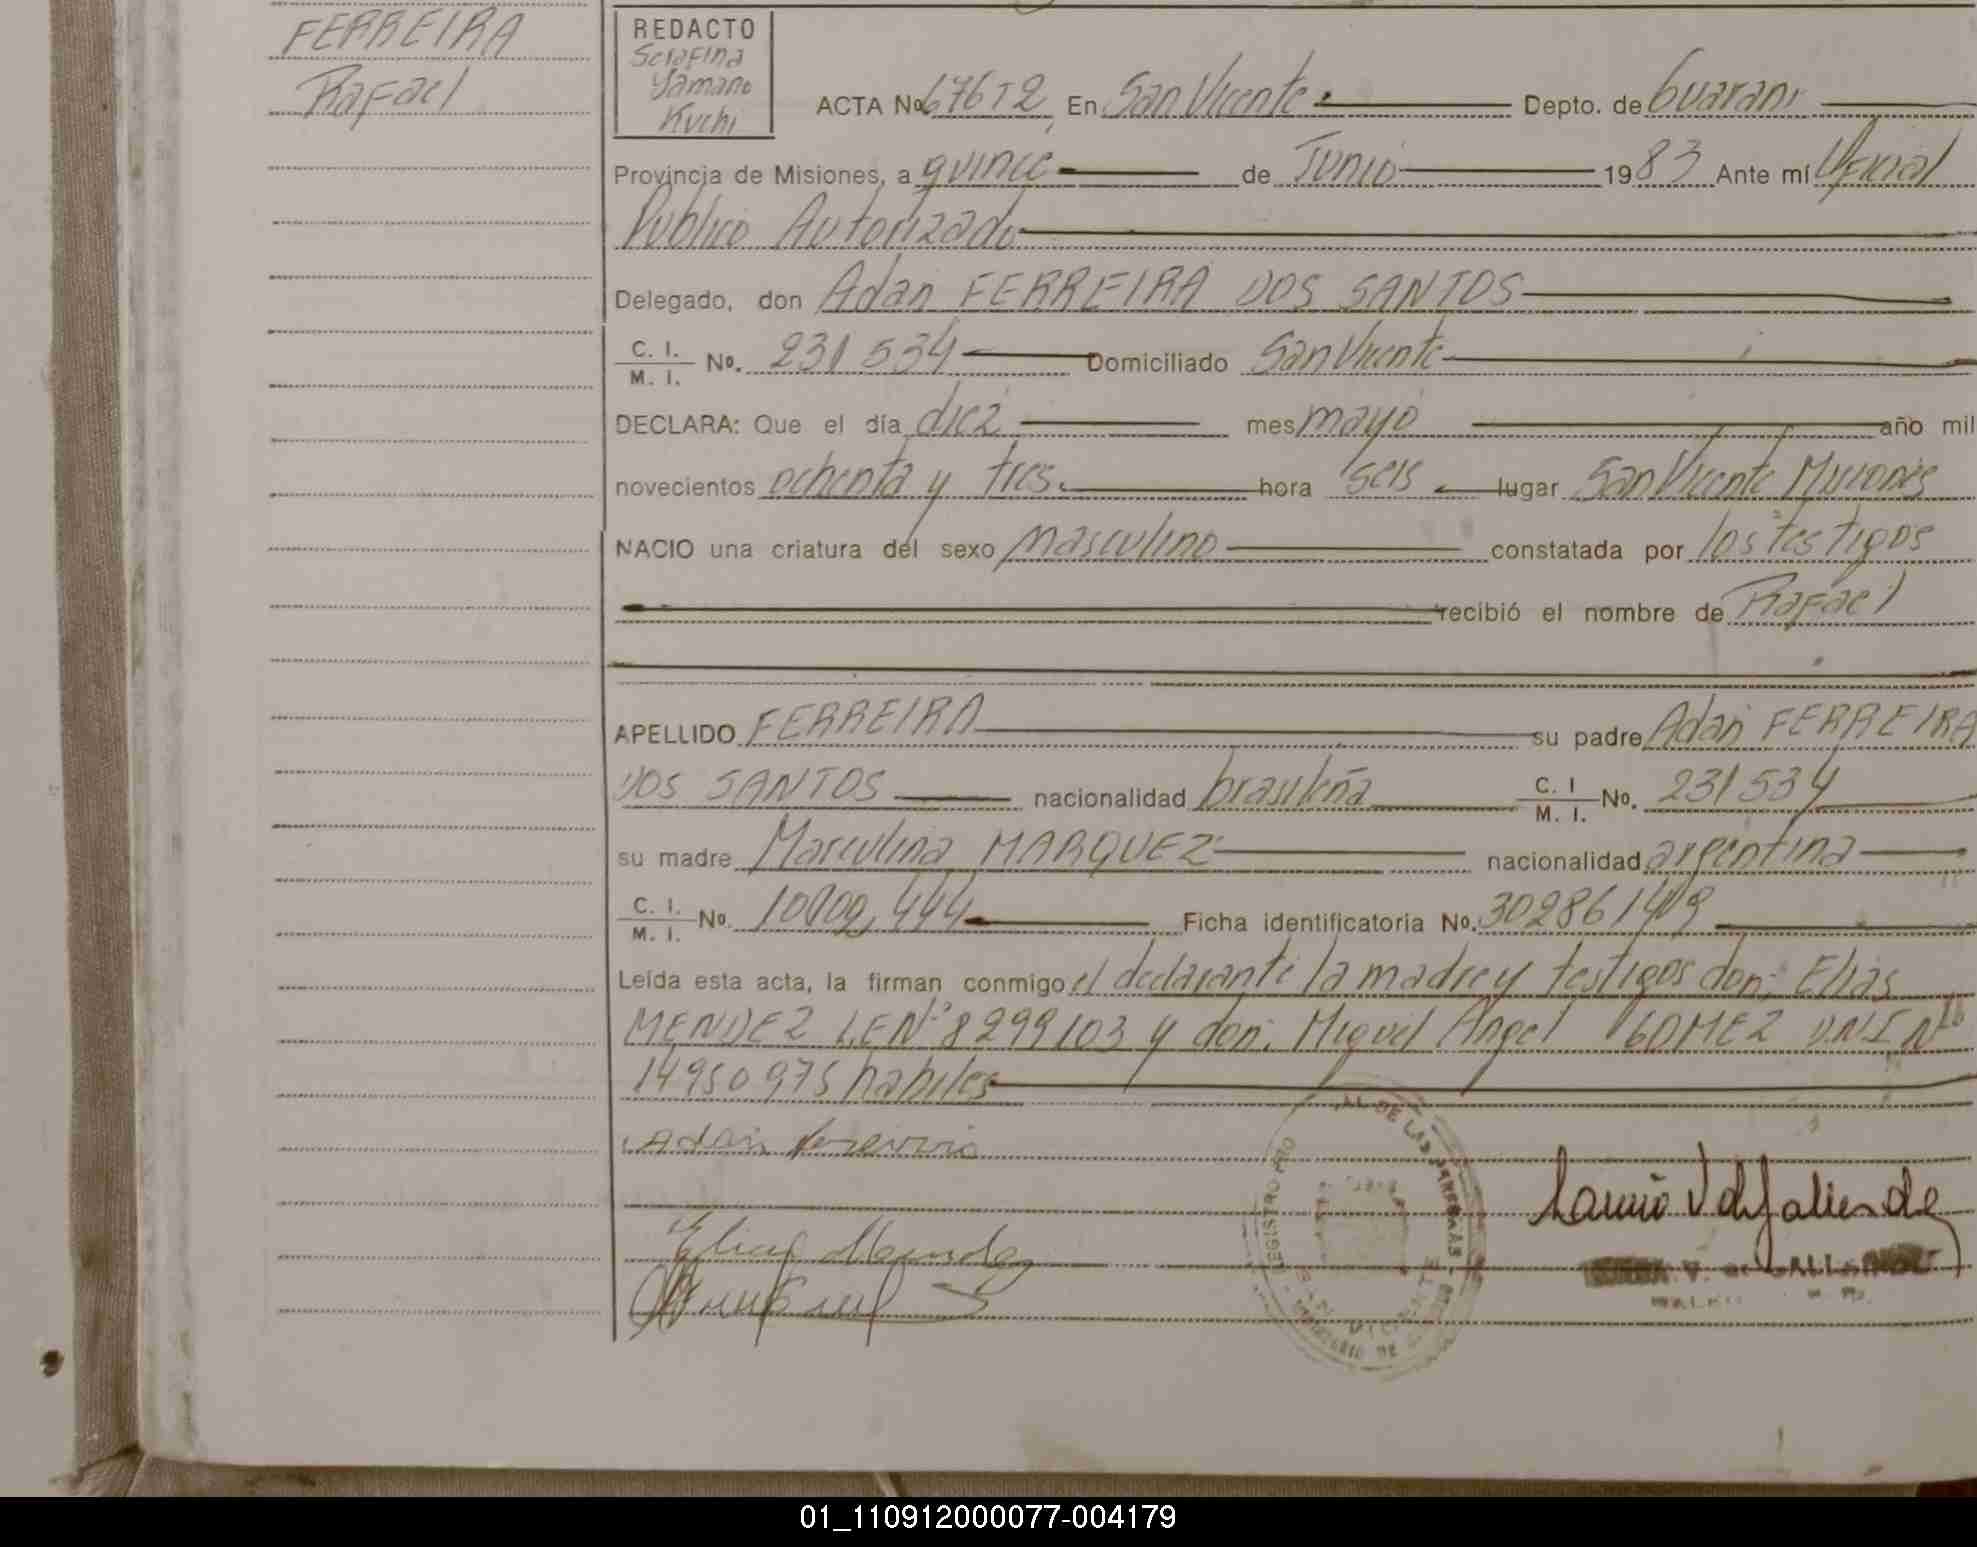 FERREIRA
Rafael
REDACTO
Serafina
Yamano
Kuchi
ACTA No 676T2 En San Vicente Depto. de Guarani
Provincia de Misiones, a quince de Junio 1983 Ante mí Oficial
Publico Autorizado
Delegado, don Adan FERREIRA DOS SANTOS
C. I. / M. I. No. 231 534 Domiciliado San Vicente
DECLARA: Que el día diez mes mayo año mil
novecientos ochenta y tres. hora seis lugar San Vicente Misiones
NACIO una criatura del sexo masculino constatada por los testigos
recibió el nombre de Rafael
APELLIDO FERREIRA su padre Adan FERREIRA
DOS SANTOS nacionalidad brasileña C. I / M. I. No. 231534
su madre Marculina MARQUEZ nacionalidad argentina
C. I. / M. I. No. Ficha identificatoria No.
Leída esta acta, la firman conmigo el declarante la madre y testigos don; Elias
MENDEZ L.E.Nº 8299103 y don: Miguel Angel GOMEZ D.N.I Nº
14950975 habiles
Adan Ferreira
Elias Mendez
REGISTRO PRO AL DE LAS PERSONAS
VICENTE
01_110912000077-004179